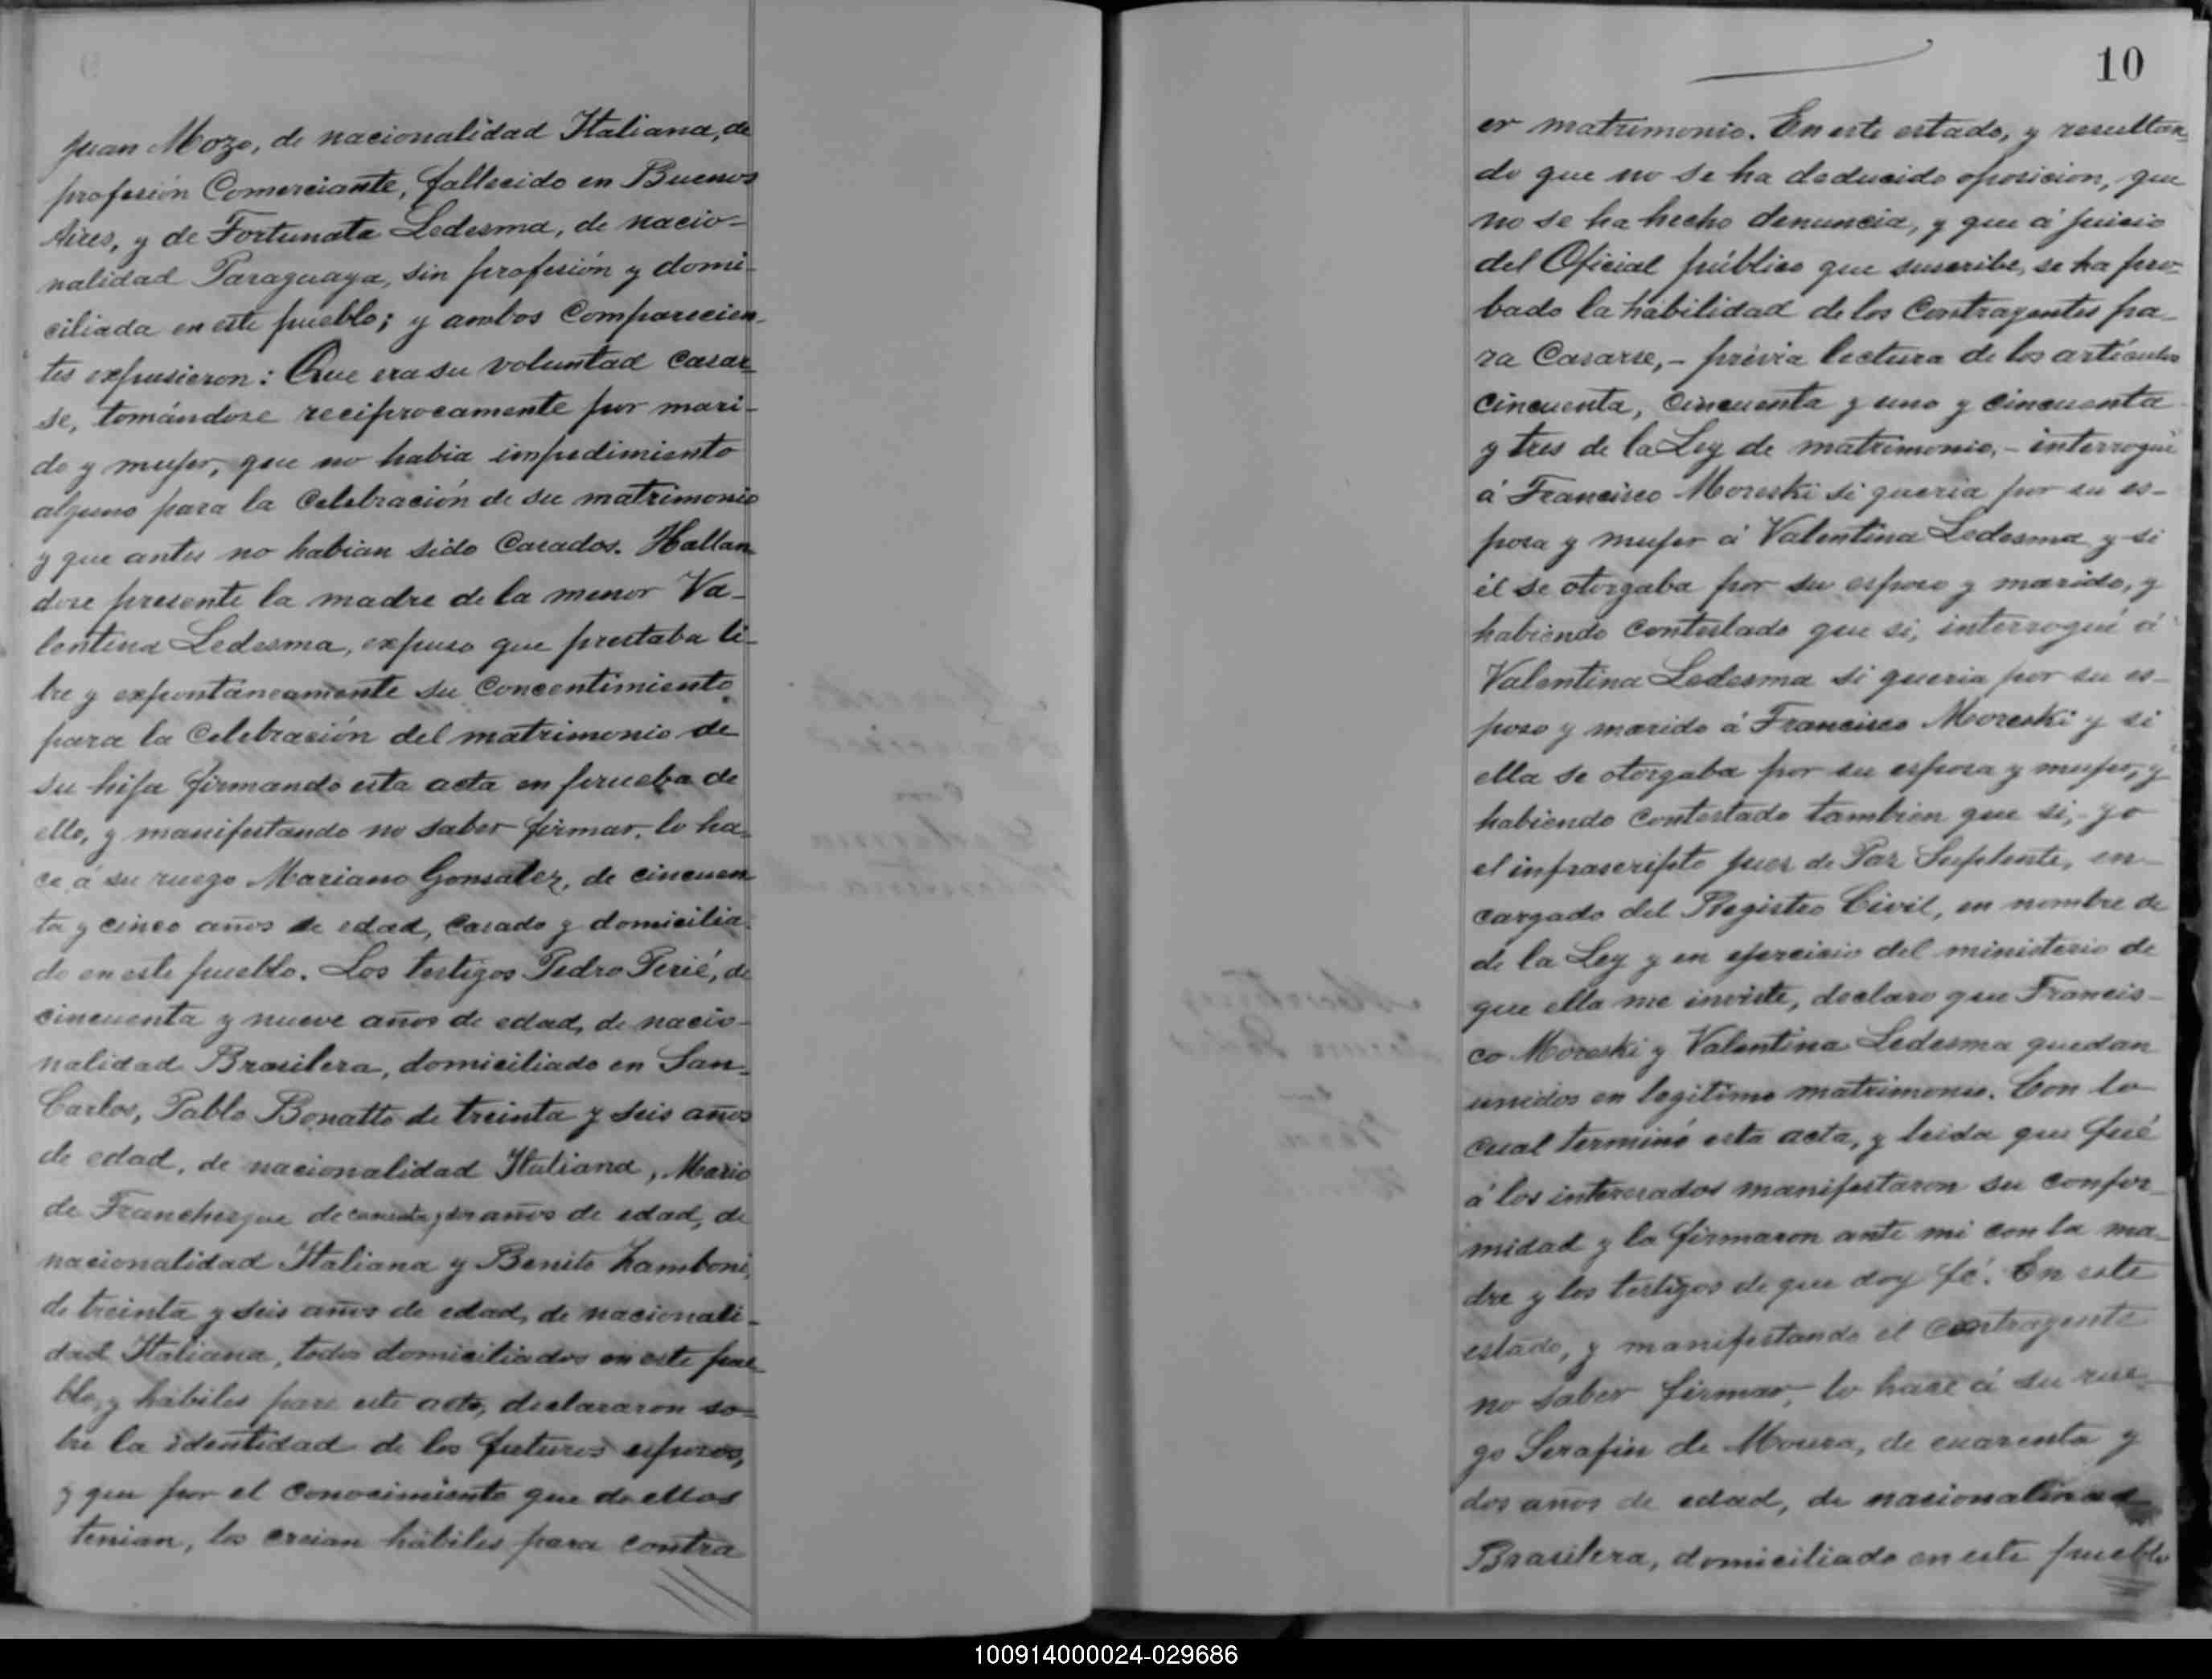 Juan Mozo, de nacionalidad Italiana, de
profesión Comerciante, fallecido en Buenos
Aires, y de Fortunata Ledesma, de nacio-
nalidad Paraguaya, sin profesión y domi-
ciliada en este pueblo; y ambos Comparecien-
tes expusieron: Que era su voluntad casar-
se, tomándose reciprocamente por mari-
do y mujer, que no habia impedimiento
alguno para la Celebración de su matrimonio
y que antes no habian sido Casados. Hallan-
dose presente la madre de la menor Va-
lentina Ledesma, expuso que prestaba li-
bre y expontáneamente su Concentimiento
para la Celebración del matrimonio de
su hija firmando esta acta en prueba de
ello, y manifestando no saber firmar, lo ha-
ce á su ruego Mariano Gonsalez, de cincuen
ta y cinco años de edad, Casado y domicilia-
do en este pueblo. Los testigos Pedro Perié, de
cincuenta y nueve años de edad, de nacio-
nalidad Brasilera, domiciliado en San-
Carlos, Pablo Bonatto de treinta y seis años
de edad, de nacionalidad Italiana, Mario
de años de edad, de
nacionalidad Italiana y Benito Zamboni,
de treinta y seis años de edad, de nacionali-
dad Italiana, todos domiciliados en este pue-
blo, y hábiles para este acto, declararon so-
bre la identidad de los futuros esposos,
y que por el conocimiento que de ellos
tenian, los creian hábiles para contra
10
er matrimonio. En este estado, y resultan-
do que no se ha deducido oposicion, que
no se ha hecho denuncia, y que á juicio
del Oficial público que suscribe, se ha pro-
bado la hábilidad de los Contrayentes pa-
ra Casarse,- prévia lectura de los artículos
cincuenta, cincuenta y uno y cincuenta
y tres de la Ley de matrimonio,- interrogué
á Francisco Moreski si queria por su es-
posa y mujer á Valentina Ledesma y si
él se otorgaba por su esposo y marido, y
habiendo Contestado que si, interrogué á
Valentina Ledesma si queria por su es-
poso y marido á Francisco Moreski y si
ella se otorgaba por su esposa y mujer, y
habiendo Contestado tambien que si,- yo
el infrascripto Juez de Paz Suplente, en-
cargado del Registro Civil, en nombre de
de la Ley y en ejercicio del ministerio de
que ella me inviste, declaro que Francis-
co Moreski y Valentina Ledesma quedan
unidos en legitimo matrimonio. Con lo
cual terminó esta acta, y leida que fué
á los interesados manifestaron su confor-
midad y la firmaron ante mi con la ma-
dre y los testigos de que doy fé. En este
estado, y manifestando el contrayente
no saber firmar, lo hace á su rue-
go Serafin de Moura, de cuarenta y
dos años de edad, de nacionalidad
Brasilera, domiciliado en este pueblo
100914000024-029686